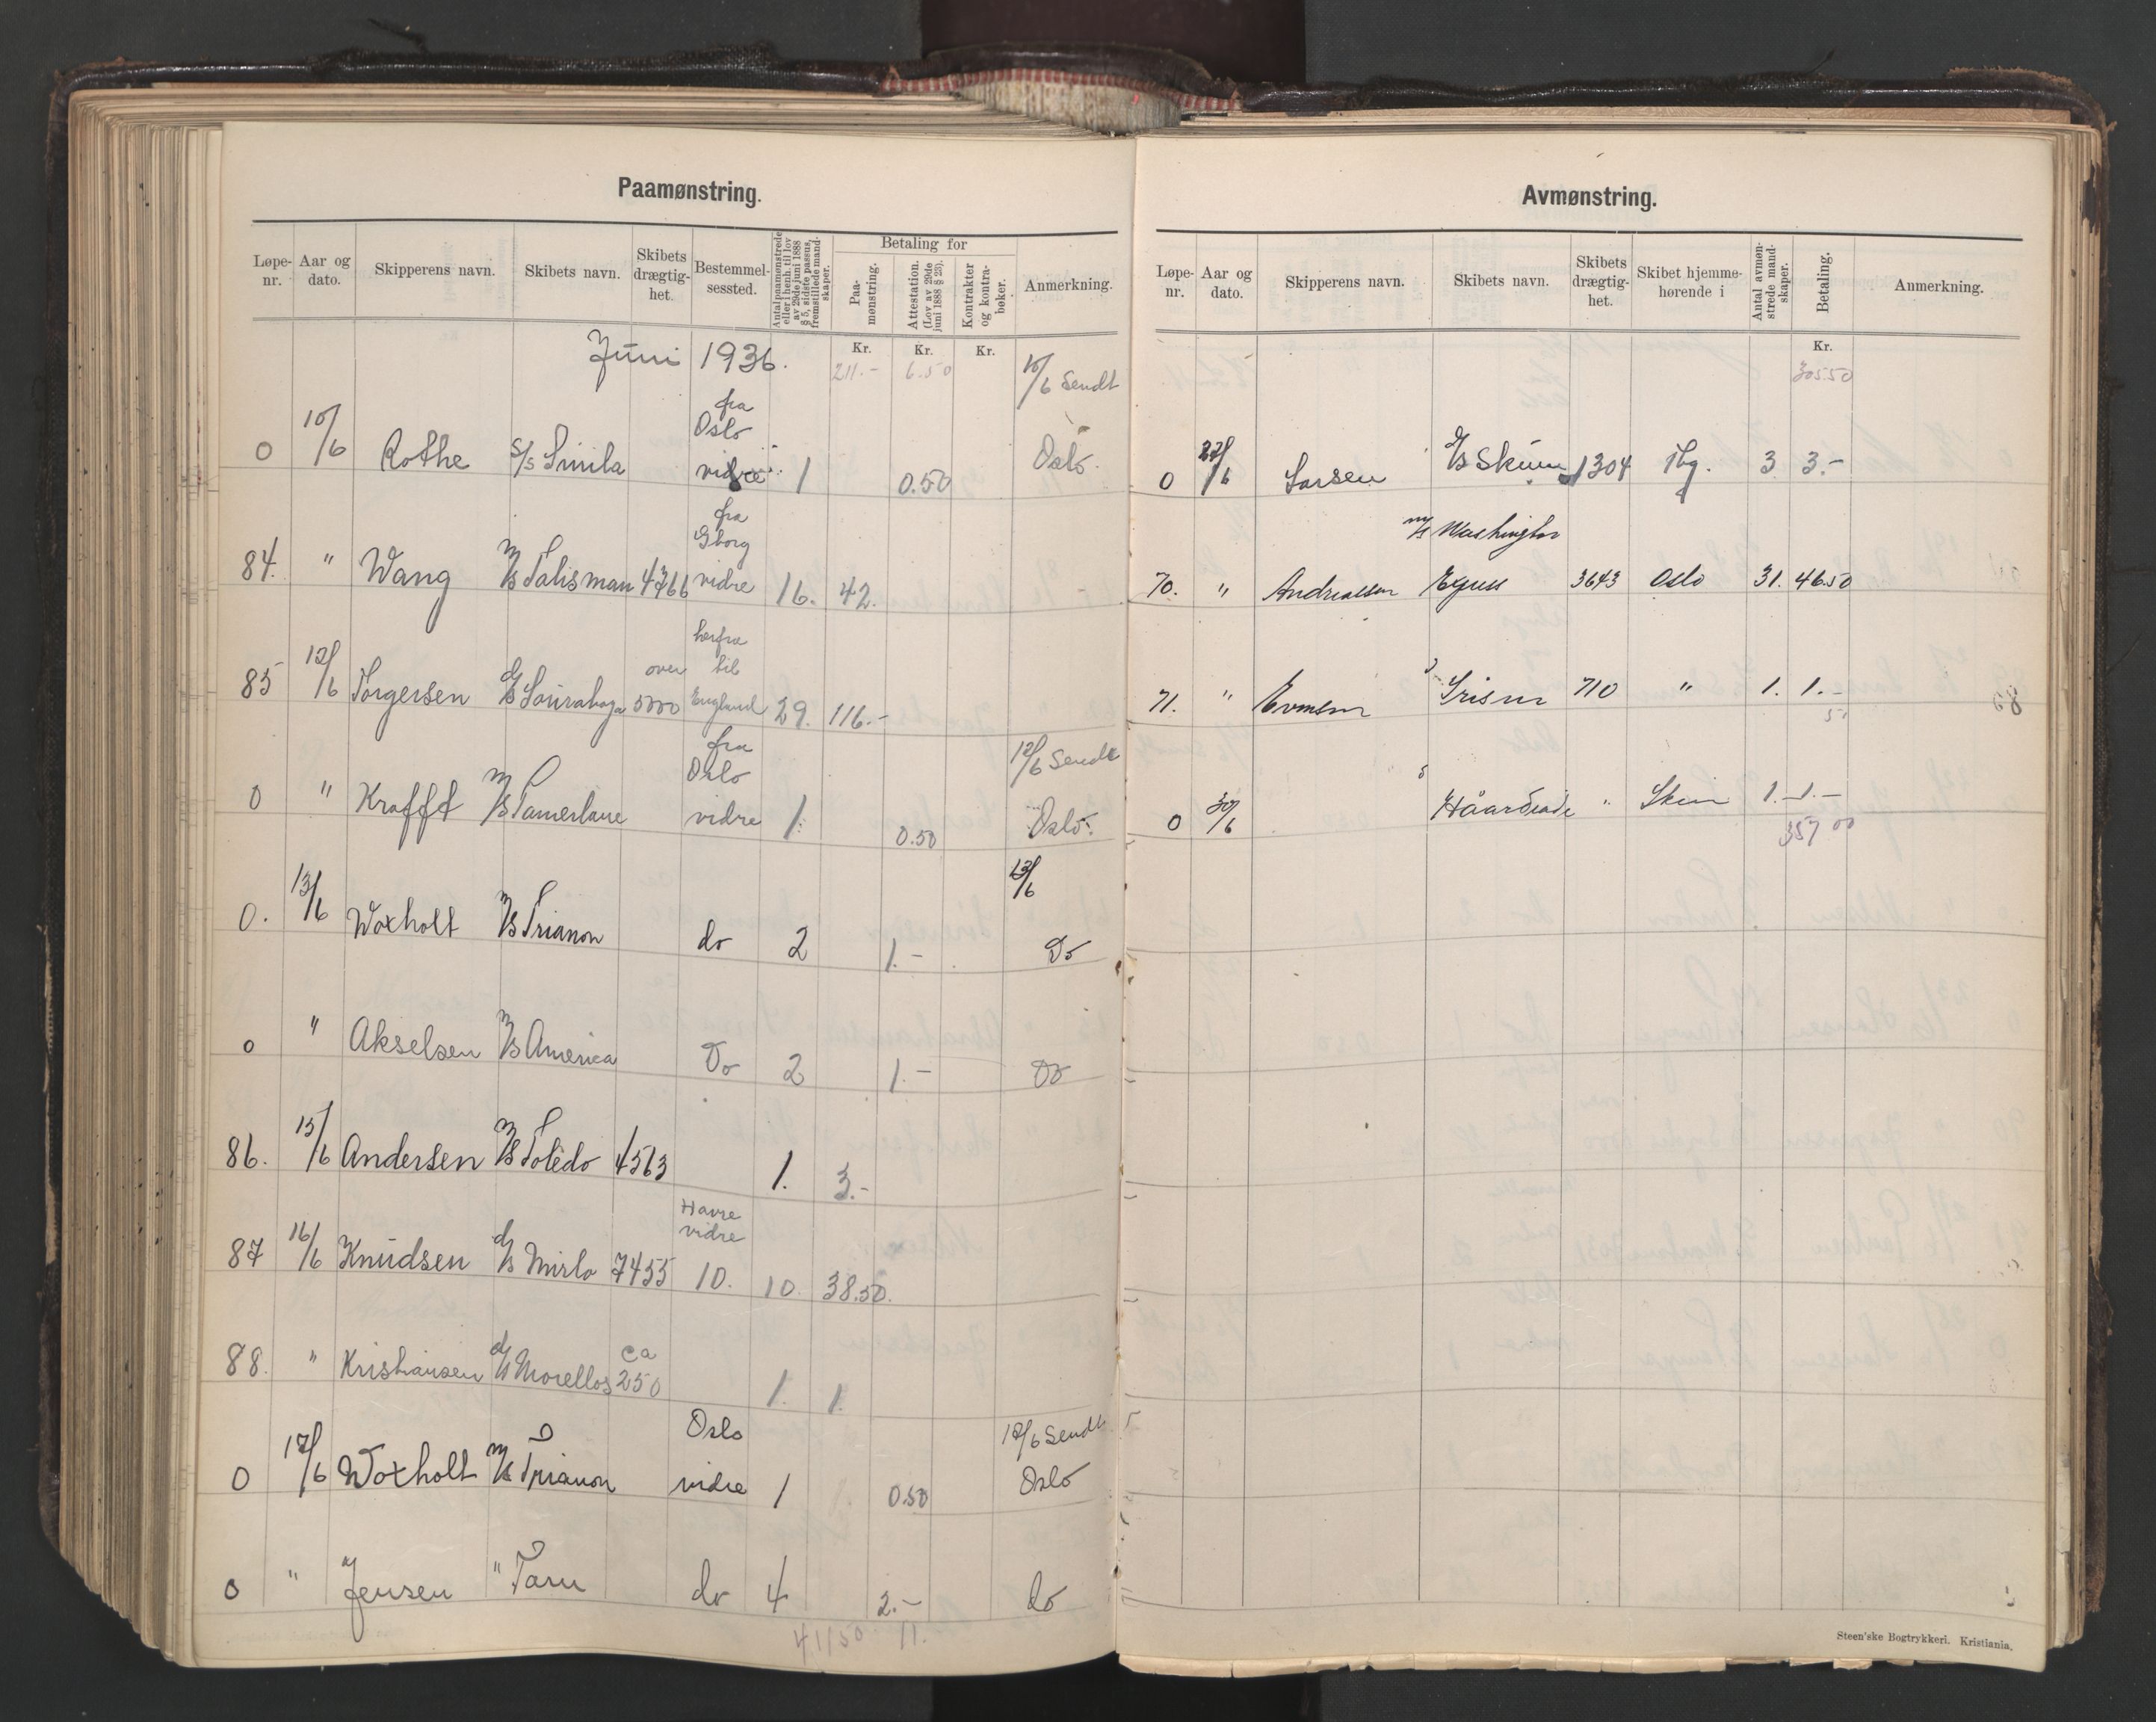 Paamønstring.
Løpe-nr. Aar og dato. Skipperens navn. Skibets navn. Skibets drægtig-het. Bestemmel-sessted. Antal paamønstrede eller i henh. til lov av 29de juni 1888 § 5, sidste passus, fremstillede mand-skaper. Betaling for Paa-mønstring. Attestation. (Lov av 29de juni 1888 § 23). Kontrakter og kontra-bøker. Anmerkning.
Kr. Kr. Kr.
Juni 1936. 211.- 6.50 10/6 Sendt
fra
Oslo
0 10/6 Rothe S/S Smila vidre 1 0.50 Oslo.
fra
Gborg
84. " Wang M/S Talisman 4766 vidre 16. 42.
herfra
over til
85 12/6 Torgersen D/S 5000 England 29. 116.-
fra 12/6 Sendt
Oslo
0 " Krafft M/S Tamerlane vidre 1. 0.50 Oslo.
13/6
0. 13/6 Woxholt M/S Trianon do 2 1.- Do
0 " Akselsen M/S America Do 2 1.- Do
86. 15/6 Andersen M/S Toledo 4563 1. 3.-
Havre
vidre
87 16/6 Knudsen D/S Mirlo 7455 10. 10. 38.50.
ca
88. " Kristiansen D/S Morellos 250 1. 1.
Oslo 17/6 Sendt
0 17/6 Woxholt M/S Trianon vidre 1 0.50 Oslo
0 " Jensen " Tarn do 4 2.- do
411.50 11.
Avmønstring.
Løpe-nr. Aar og dato. Skipperens navn. Skibets navn. Skibets drægtig-het. Skibet hjemme-hørende i Antal avmøn-strede mand-skaper. Betaling. Anmerkning.
Kr.
305.50
0 27/6 Larsen D/S Skum 1304 Hbg. 3 3.-
M/S Washington
70. " Andreassen Expess 3643 Oslo 31. 46.50
71. " Evensen 710 " 1. 1.-
0 30/6 Haardraade " Skien 1. 1.-
357 00
Steen'ske Bogtrykkeri. Kristiania.